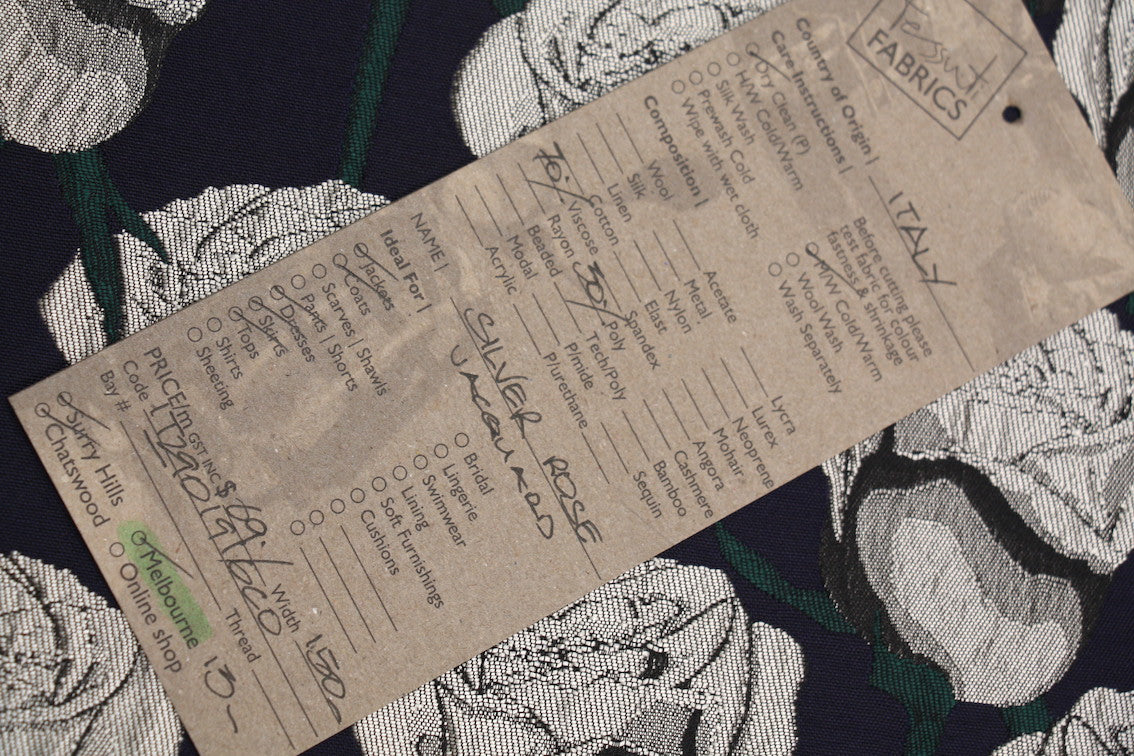 Tessuti
FABRICS
Country of Origin | ITALY
Care Instructions |
Before cutting please
test fabric for colour
fastness & shrinkage
Dry Clean (P)
M/W Cold/Warm
H/W Cold/Warm
Wool Wash
Silk Wash
Wash Separately
Prewash Cold
Wipe with wet cloth
Composition |
Wool
Acetate
Lycra
Silk
Metal
Lurex
Linen
Nylon
Neoprene
Cotton
Elast
Mohair
70% Viscose
Spandex
Angora
Rayon
30% Poly
Cashmere
Beaded
Tech/Poly
Bamboo
Modal
P/mide
Sequin
Acrylic
P/urethane
NAME | SILVER ROSE
JACQUARD
Ideal For |
Jackets
Bridal
Coats
Lingerie
Scarves | Shawls
Swimwear
Pants | Shorts
Lining
Dresses
Soft Furnishings
Skirts
Cushions
Tops
Shirts
Sheeting
PRICE/m GST INC $ 69.- Width 1.50
Code Thread
Bay # 13-
Surry Hills
Melbourne
Chatswood
Online shop